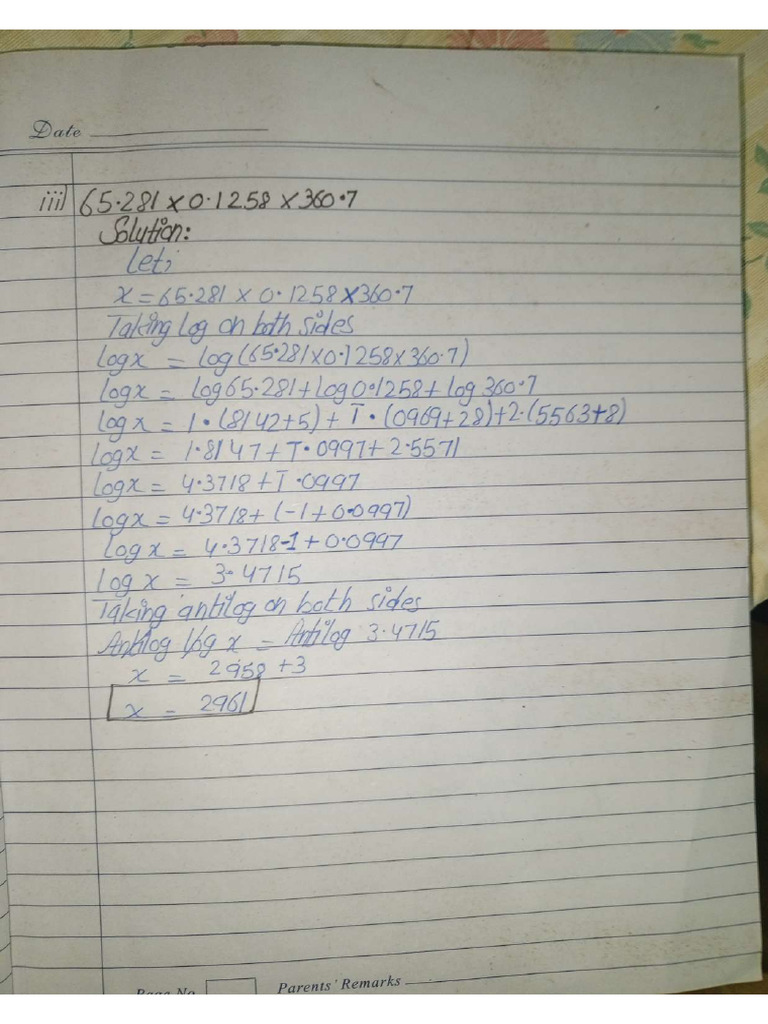 Date
iii) 65.281 × 0.1258 × 360.7
Solution:
Let,
x = 65.281 × 0.1258 × 360.7
Taking log on both sides
logx = log(65.281×0.1258×360.7)
logx = log65.281+log0.1258+log 360.7
logx = 1.(8142+5)+1̅.(0969+28)+2.(5563+8)
logx = 1.8147+1̅.0997+2.5571
logx = 4.3718+1̅.0997
logx = 4.3718+(-1+0.0997)
log x = 4.3718-1+0.0997
log x = 3.4715
Taking antilog on both sides
Antilog log x = Antilog 3.4715
x = 2958 +3
x = 2961
Page No. Parents' Remarks